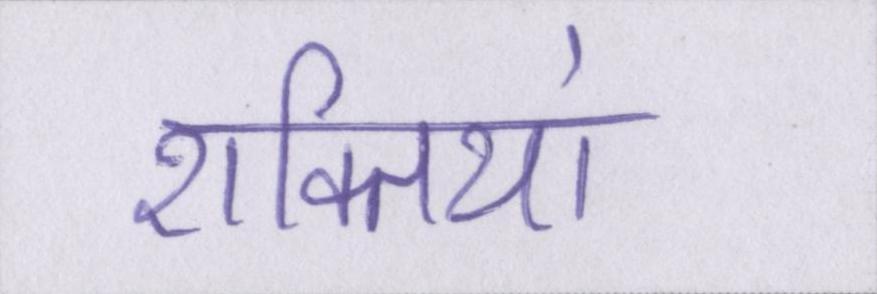 शक्तियां